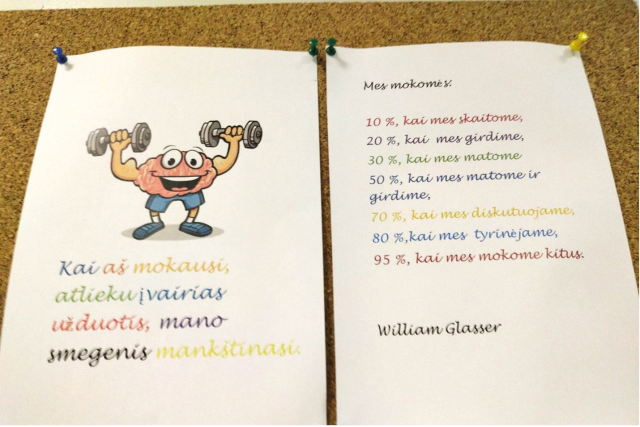 Kai aš mokausi,
atlieku įvairias
užduotis, mano
smegenis mankštinasi.
Mes mokomės:
10 %, kai mes skaitome,
20 %, kai mes girdime,
30 %, kai mes matome
50 %, kai mes matome ir
girdime,
70 %, kai mes diskutuojame,
80 %,kai mes tyrinėjame,
95 %, kai mes mokome kitus.
William Glasser